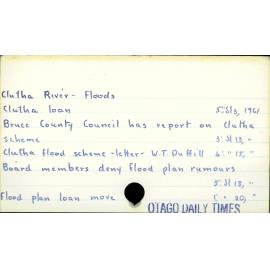 Clutha River - Floods
Clutha loan 5 Jl 3, 1961
Bruce County Council has report on Clutha
scheme 3 Jl 13,"
Clutha flood scheme -letter- W.T. Duffill 4 " " 15,"
Board members deny flood plan rumours
5 Jl 18,"
Flood plan loan move " 20,"
OTAGO DAILY TIMES